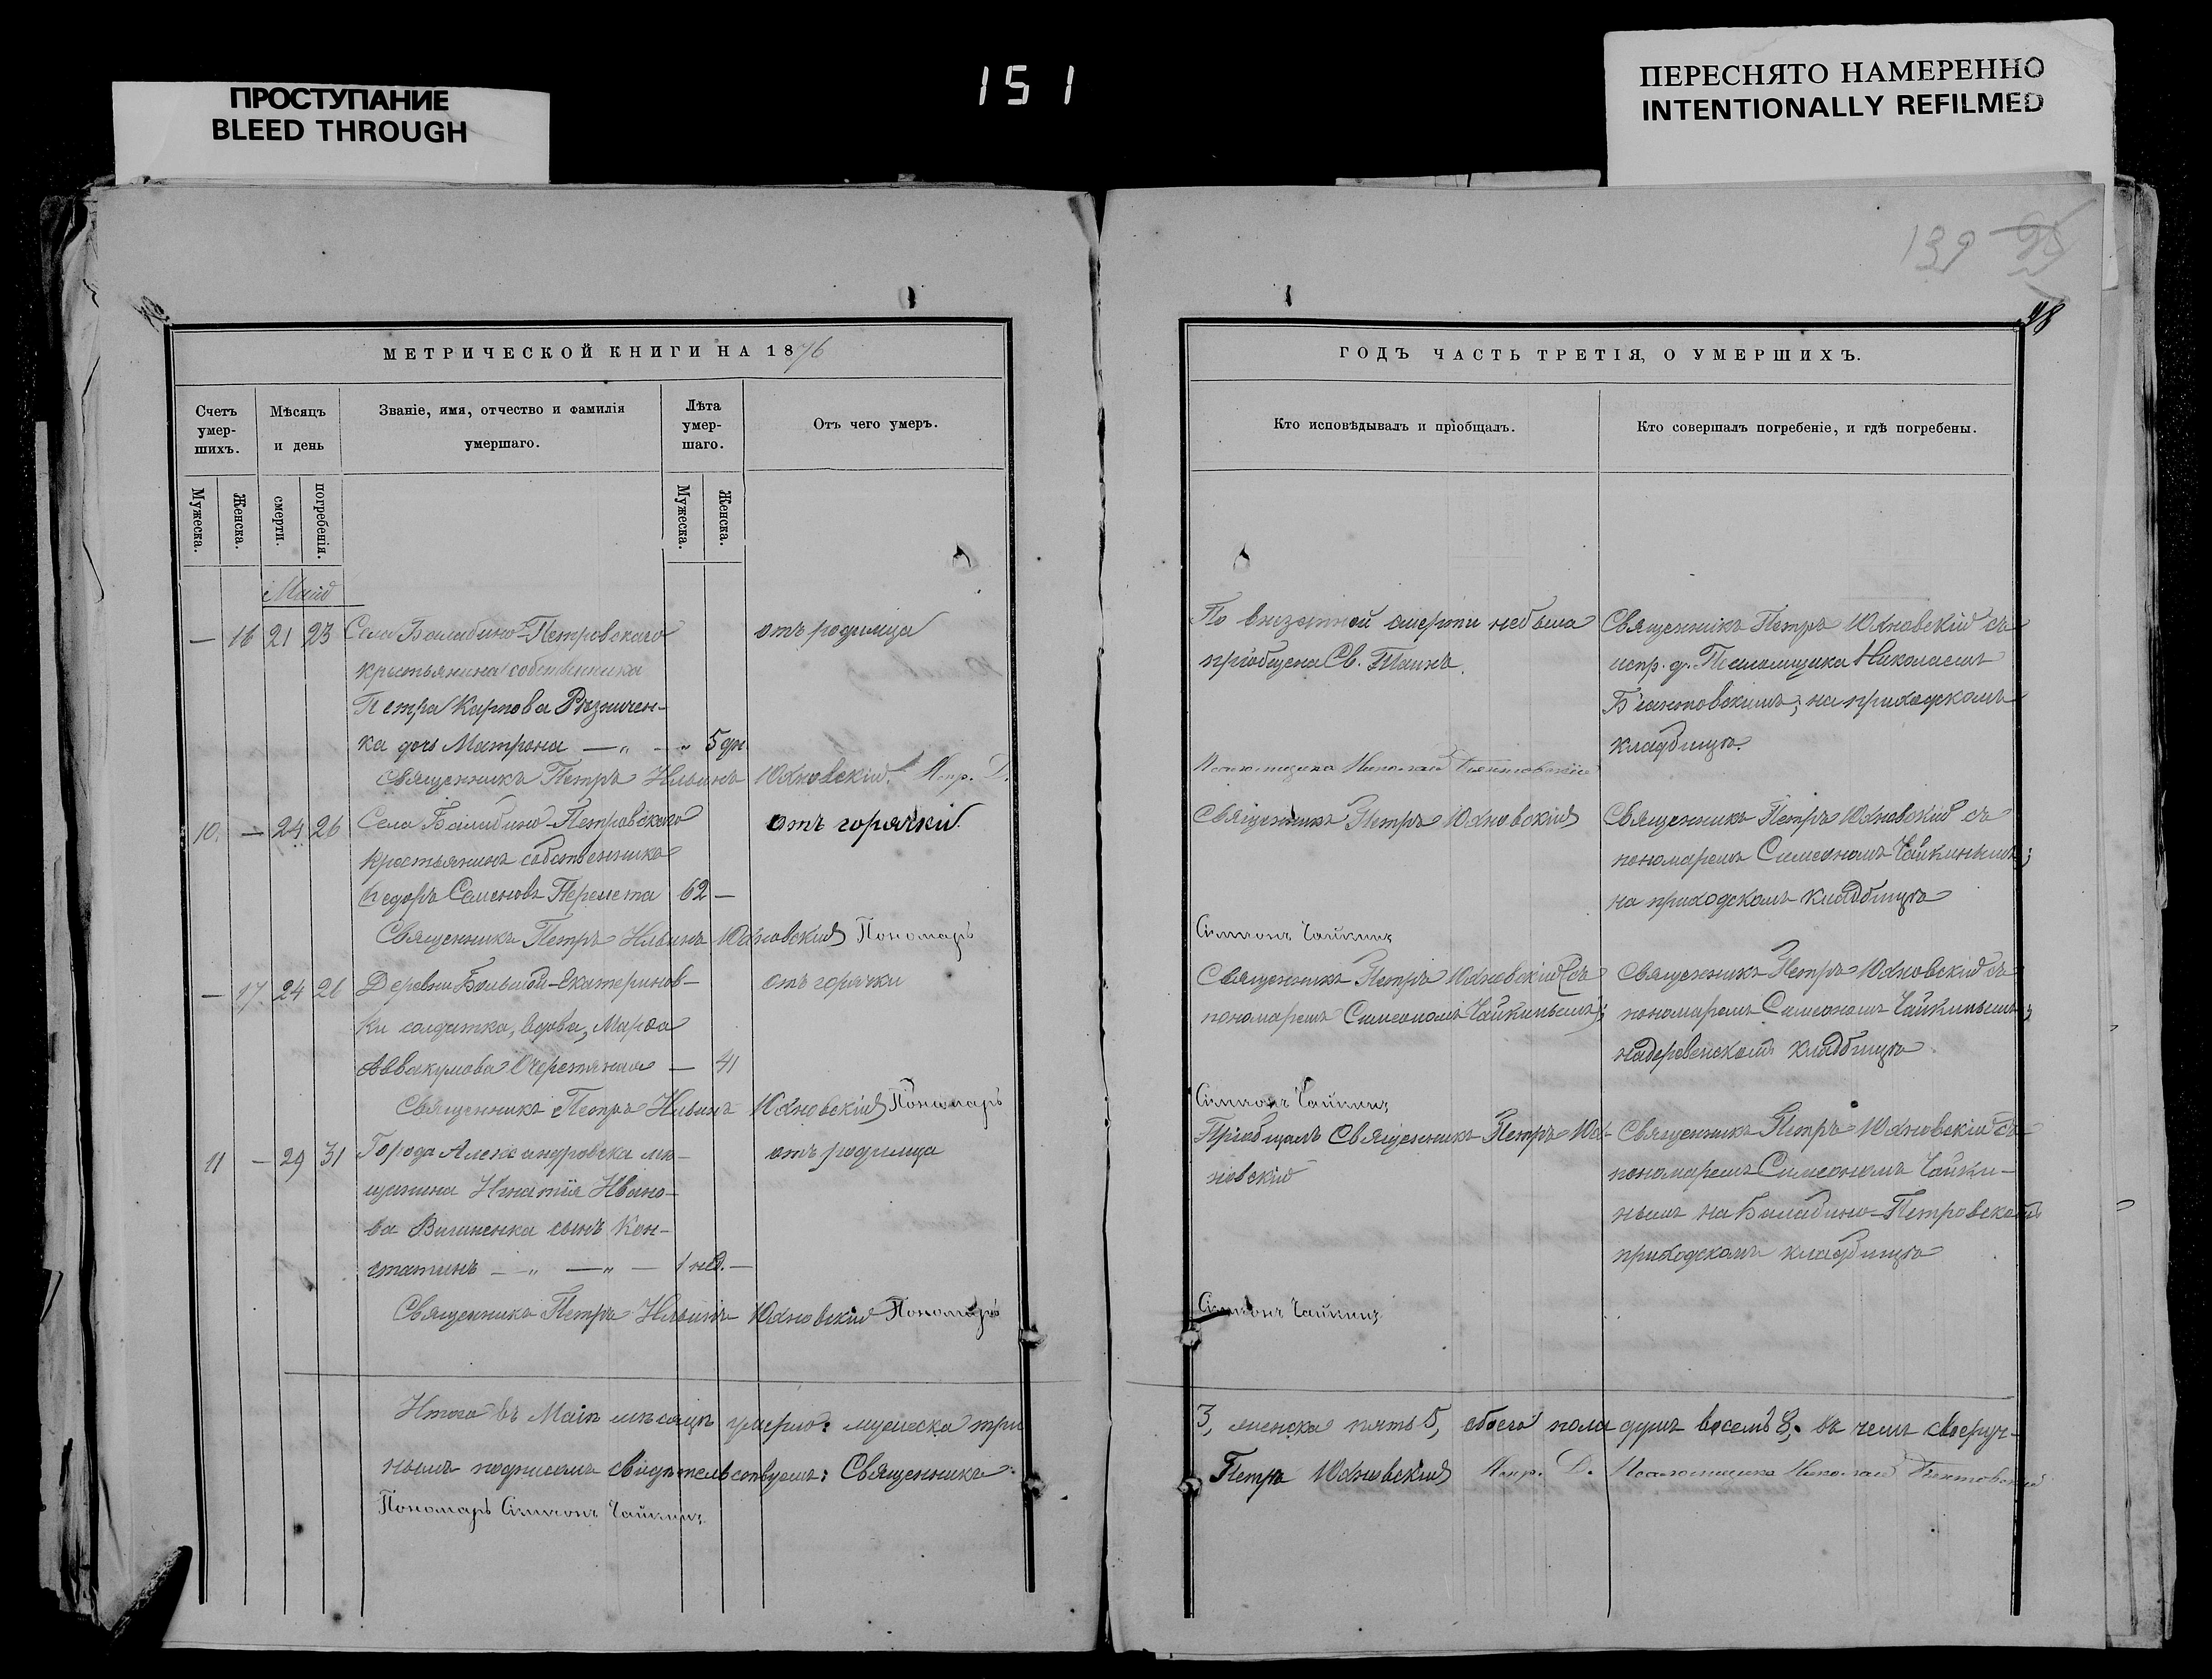 151
ПРОСТУПАНИЕ
BLEED THROUGH
ПЕРЕСНЯТО НАМЕРЕННО
INTENTIONALLY REFILMED
139
98
МЕТРИЧЕСКОЙ КНИГИ НА 1876
Счетъ умер-шихъ.
Мѣсяцъ и день
Званіе, имя, отчество и фамилія умершаго.
Лѣта умер-шаго.
Отъ чего умеръ.
Мужеска.
Женска.
смерти.
погребенія.
Мужеска.
Женска.
Май
— 16 21 23 Села Балабино-Петровскаго отъ родимца
крестьянина собственника
Петра Карпова Рѣзничен-
ка дочь Матрона — „ — „ 5 дн.
Священникъ Петръ Ильинъ Юхновскій. Испр. Д.
10. — 24 26 Села Балабино-Петровского отъ горячки.
крестьянинъ собственникъ
Ѳедоръ Семеновъ Перемета 62 —
Священникъ Петръ Ильинъ Юхновскій Пономарь
— 17 24 26 Деревни Большой-Екатеринов- отъ горячки
ки солдатка, вдова, Марѳа
Аввакумова Очеретяная — 41
Священникъ Петръ Ильинъ Юхновскій Пономарь
11 — 29 31 Города Александровска мѣ- отъ родимца
щанина Игнатія Ивано-
ва сынъ Кон-
статинъ — „ — „ — 1 нед. —
Священникъ Петръ Ильинъ Юхновскій Пономарь
Итого въ Маѣ мѣсяцѣ умерло: мужеска три
нымъ подписомъ свидѣтельствуемъ: Священникъ
Пономарь Симеонъ Чайкинъ
ГОДЪ ЧАСТЬ ТРЕТІЯ, О УМЕРШИХЪ.
Кто исповѣдывалъ и пріобщалъ.
Кто совершалъ погребеніе, и гдѣ погребены.
По внезапной смерти не была
пріобщена Св. Таинъ.
Псаломщика Николай
Священникъ Петръ Юхновскій съ
испр. д. Псаломщика Николаемъ
на приходскомъ
кладбищѣ.
Священникъ Петръ Юхновскій
Симеонъ Чайкинъ
Священникъ Петръ Юхновскій съ
пономаремъ Симеономъ Чайкинымъ;
на приходскомъ кладбищѣ
Священникъ Петръ Юхновскій (съ
пономаремъ Симеономъ Чайкинымъ);
Симеонъ Чайкинъ
Священникъ Петръ Юхновскій съ
пономаремъ Симеономъ Чайкинымъ;
на деревенскомъ кладбищѣ
Пріобщалъ Священникъ Петръ Юх-
новскій
Симеонъ Чайкинъ
Священникъ Петръ Юхновскій съ
пономаремъ Симеономъ Чайки-
нымъ на Балабино-Петровскомъ
приходскомъ кладбищѣ
3, женска пять 5, обоего пола душъ восемь 8; въ чемъ своеруч-
Петръ Юхновскій Испр. Д. Псаломщика Николай